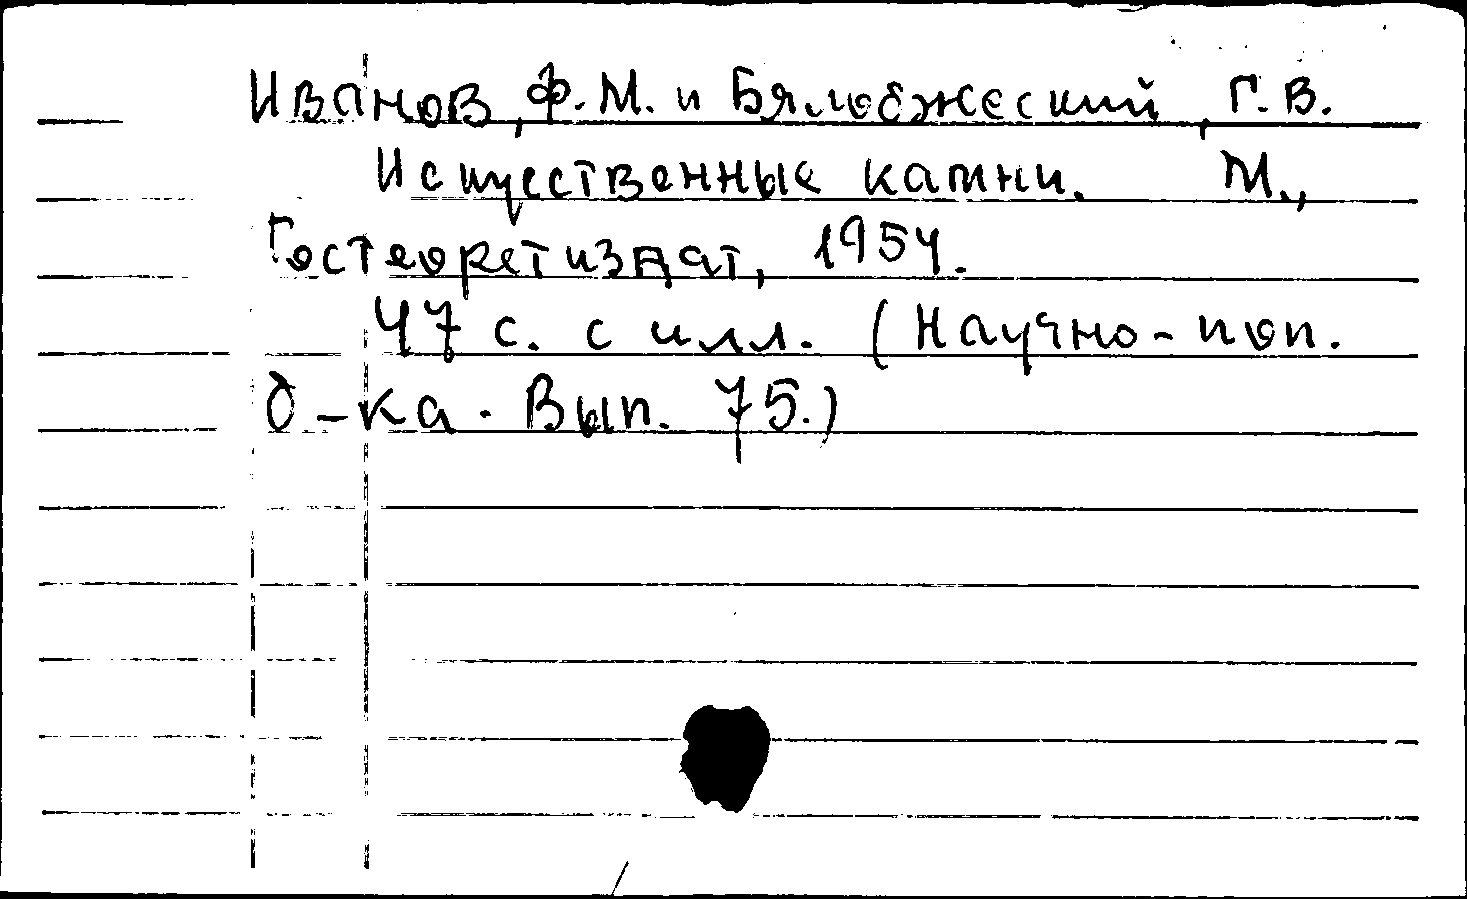 Иванов, Ф.М. и Бялобжеский, Г.В.
Искусственные камни. М.,
Гостеоретиздат, 1954.
47 с. с илл. (Научно-поп.
б-ка. Вып. 75.)